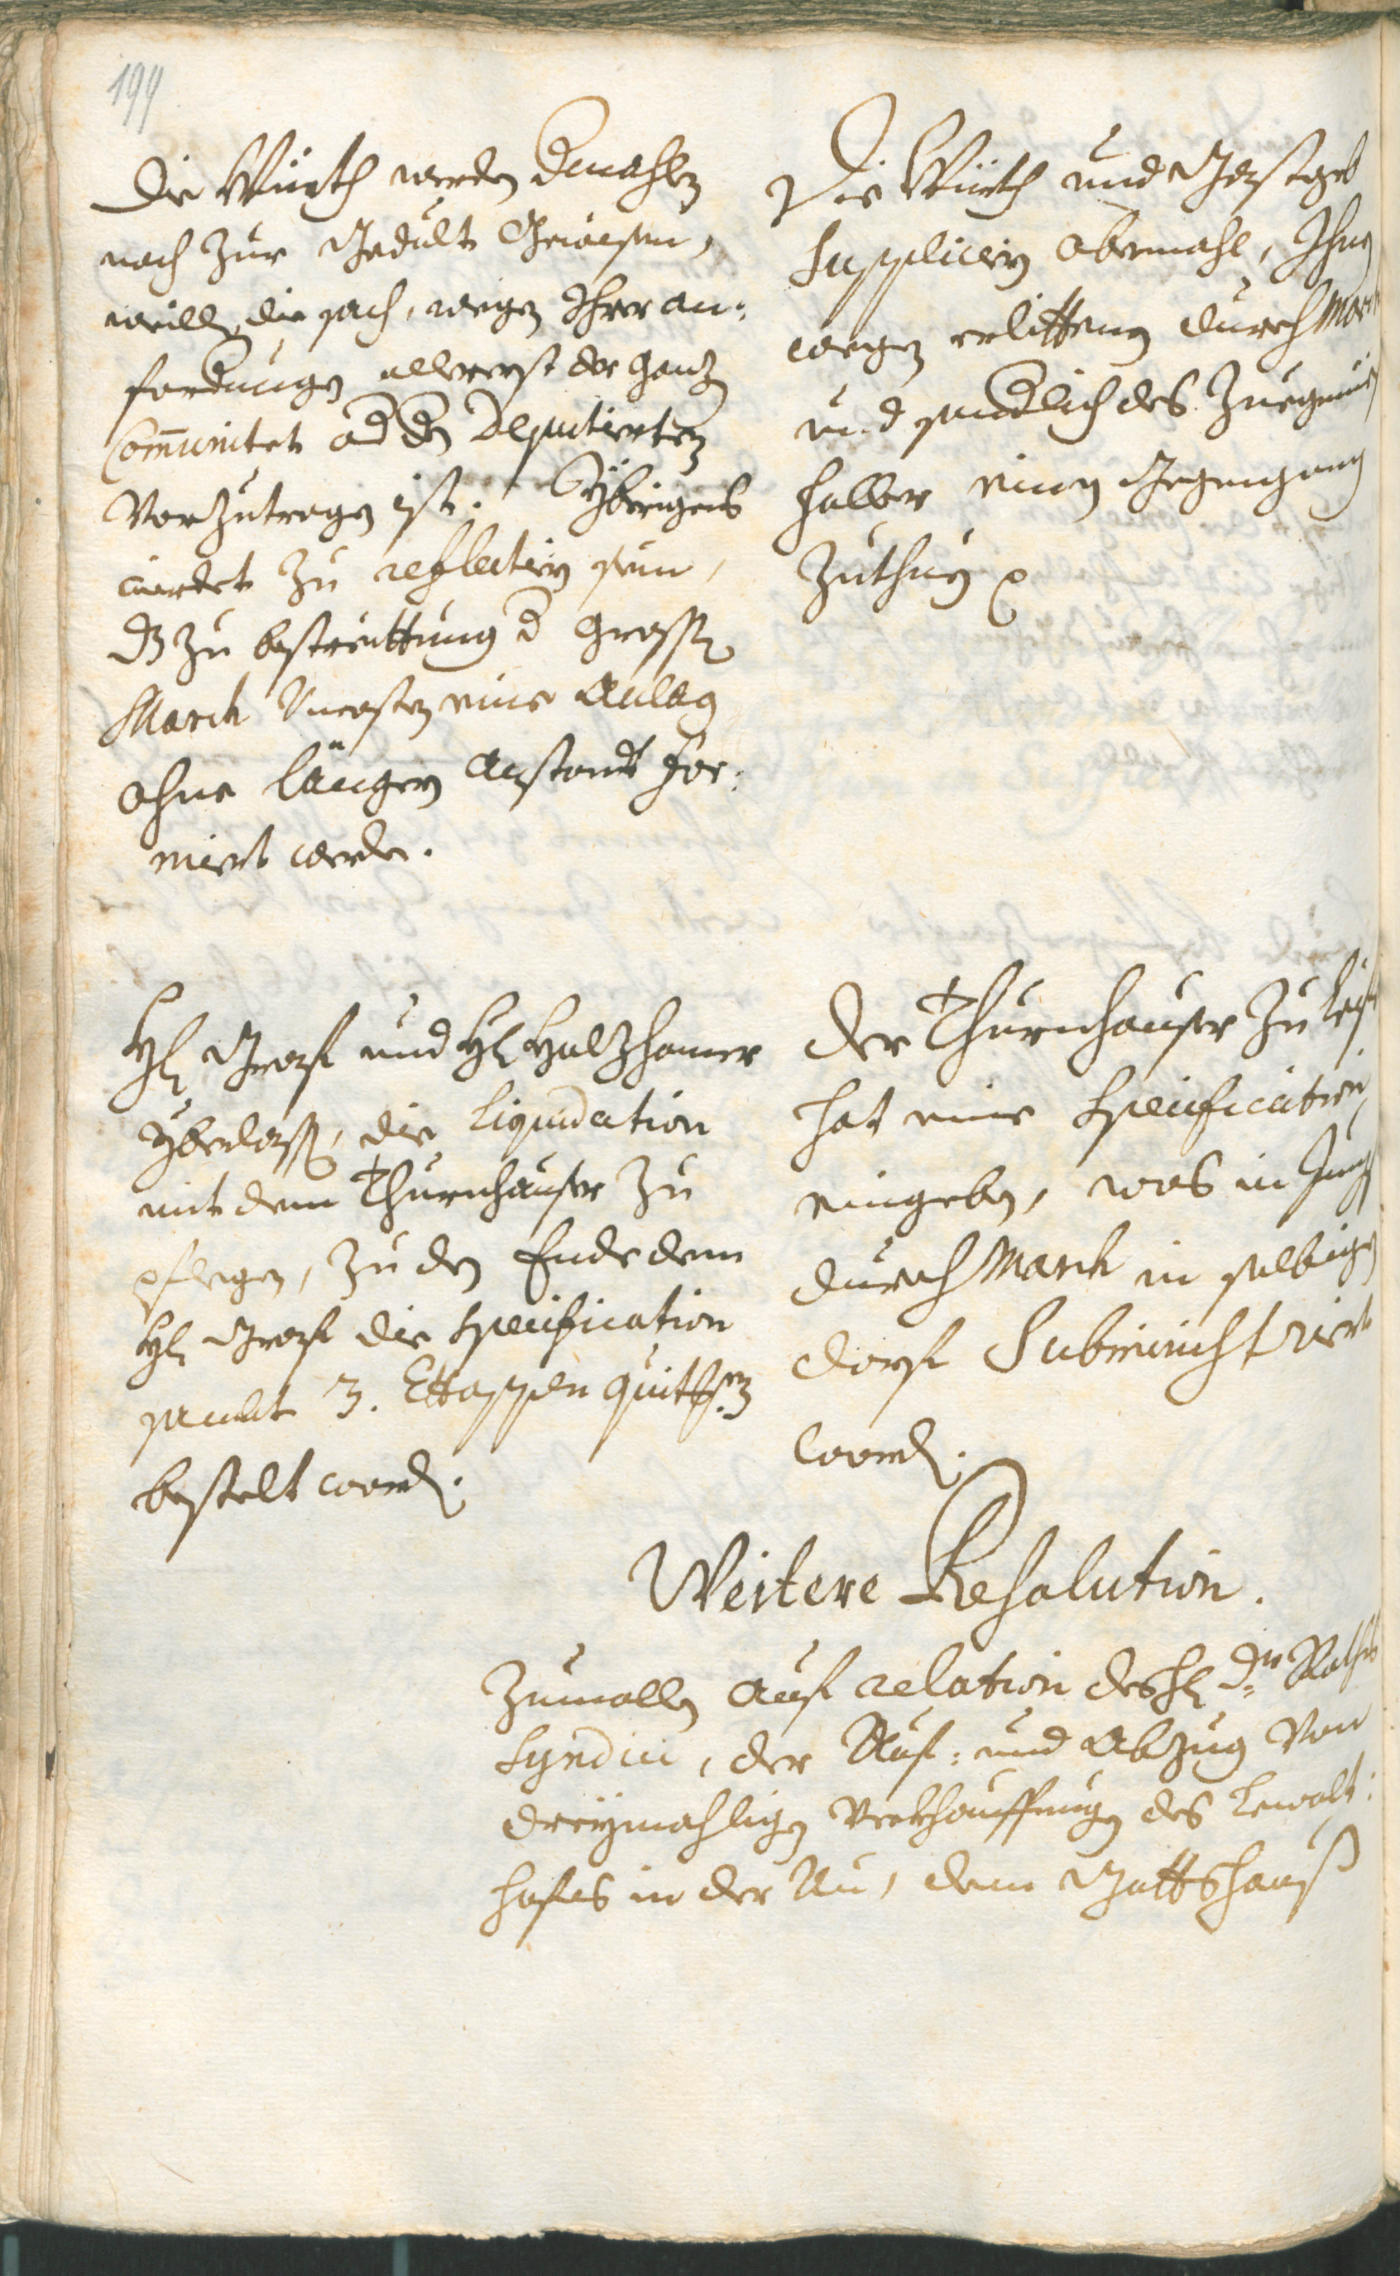 199
Die Würth werden dmahlen
noch zur Gedult Gewiesen,
weillen die sach, wegen Ihrer an-
fordrungen allererst der ganzen
Communitet od den Deputierten
Vorzutragen ist. Ybrigens
würdet zu reflectiern sein,
dz zu bestreittung d grossen
March Uncosten eine Anlag
ohne längern Anstandt for-
miert werde.
Die Würth und Gastgeb
Supplicieren abermahl, Ihnen
wegen erlittenen durch March
halber einen Gegengang
zuthuen
Hl Graf und Hl Holzhamer
yberlassen, die Liquidation
mit dem Thurnhauser zu
pflegen, zu den Ende dem
Hl Graf die Specification
sambt 3. Ettappen quittgen
bestelt worden.
Der Thurnhauser zu
hat eine Specification
eingeben, was in
durch March in selbigen
dorf Subministriert
worden.
Weitere Resolution.
Zumallen auf relation des Hl Dr
Syndici, der Auf- und Abzug Von
dreymahligen Verkhauffung des
hofes in der Au, dem Gottshauß